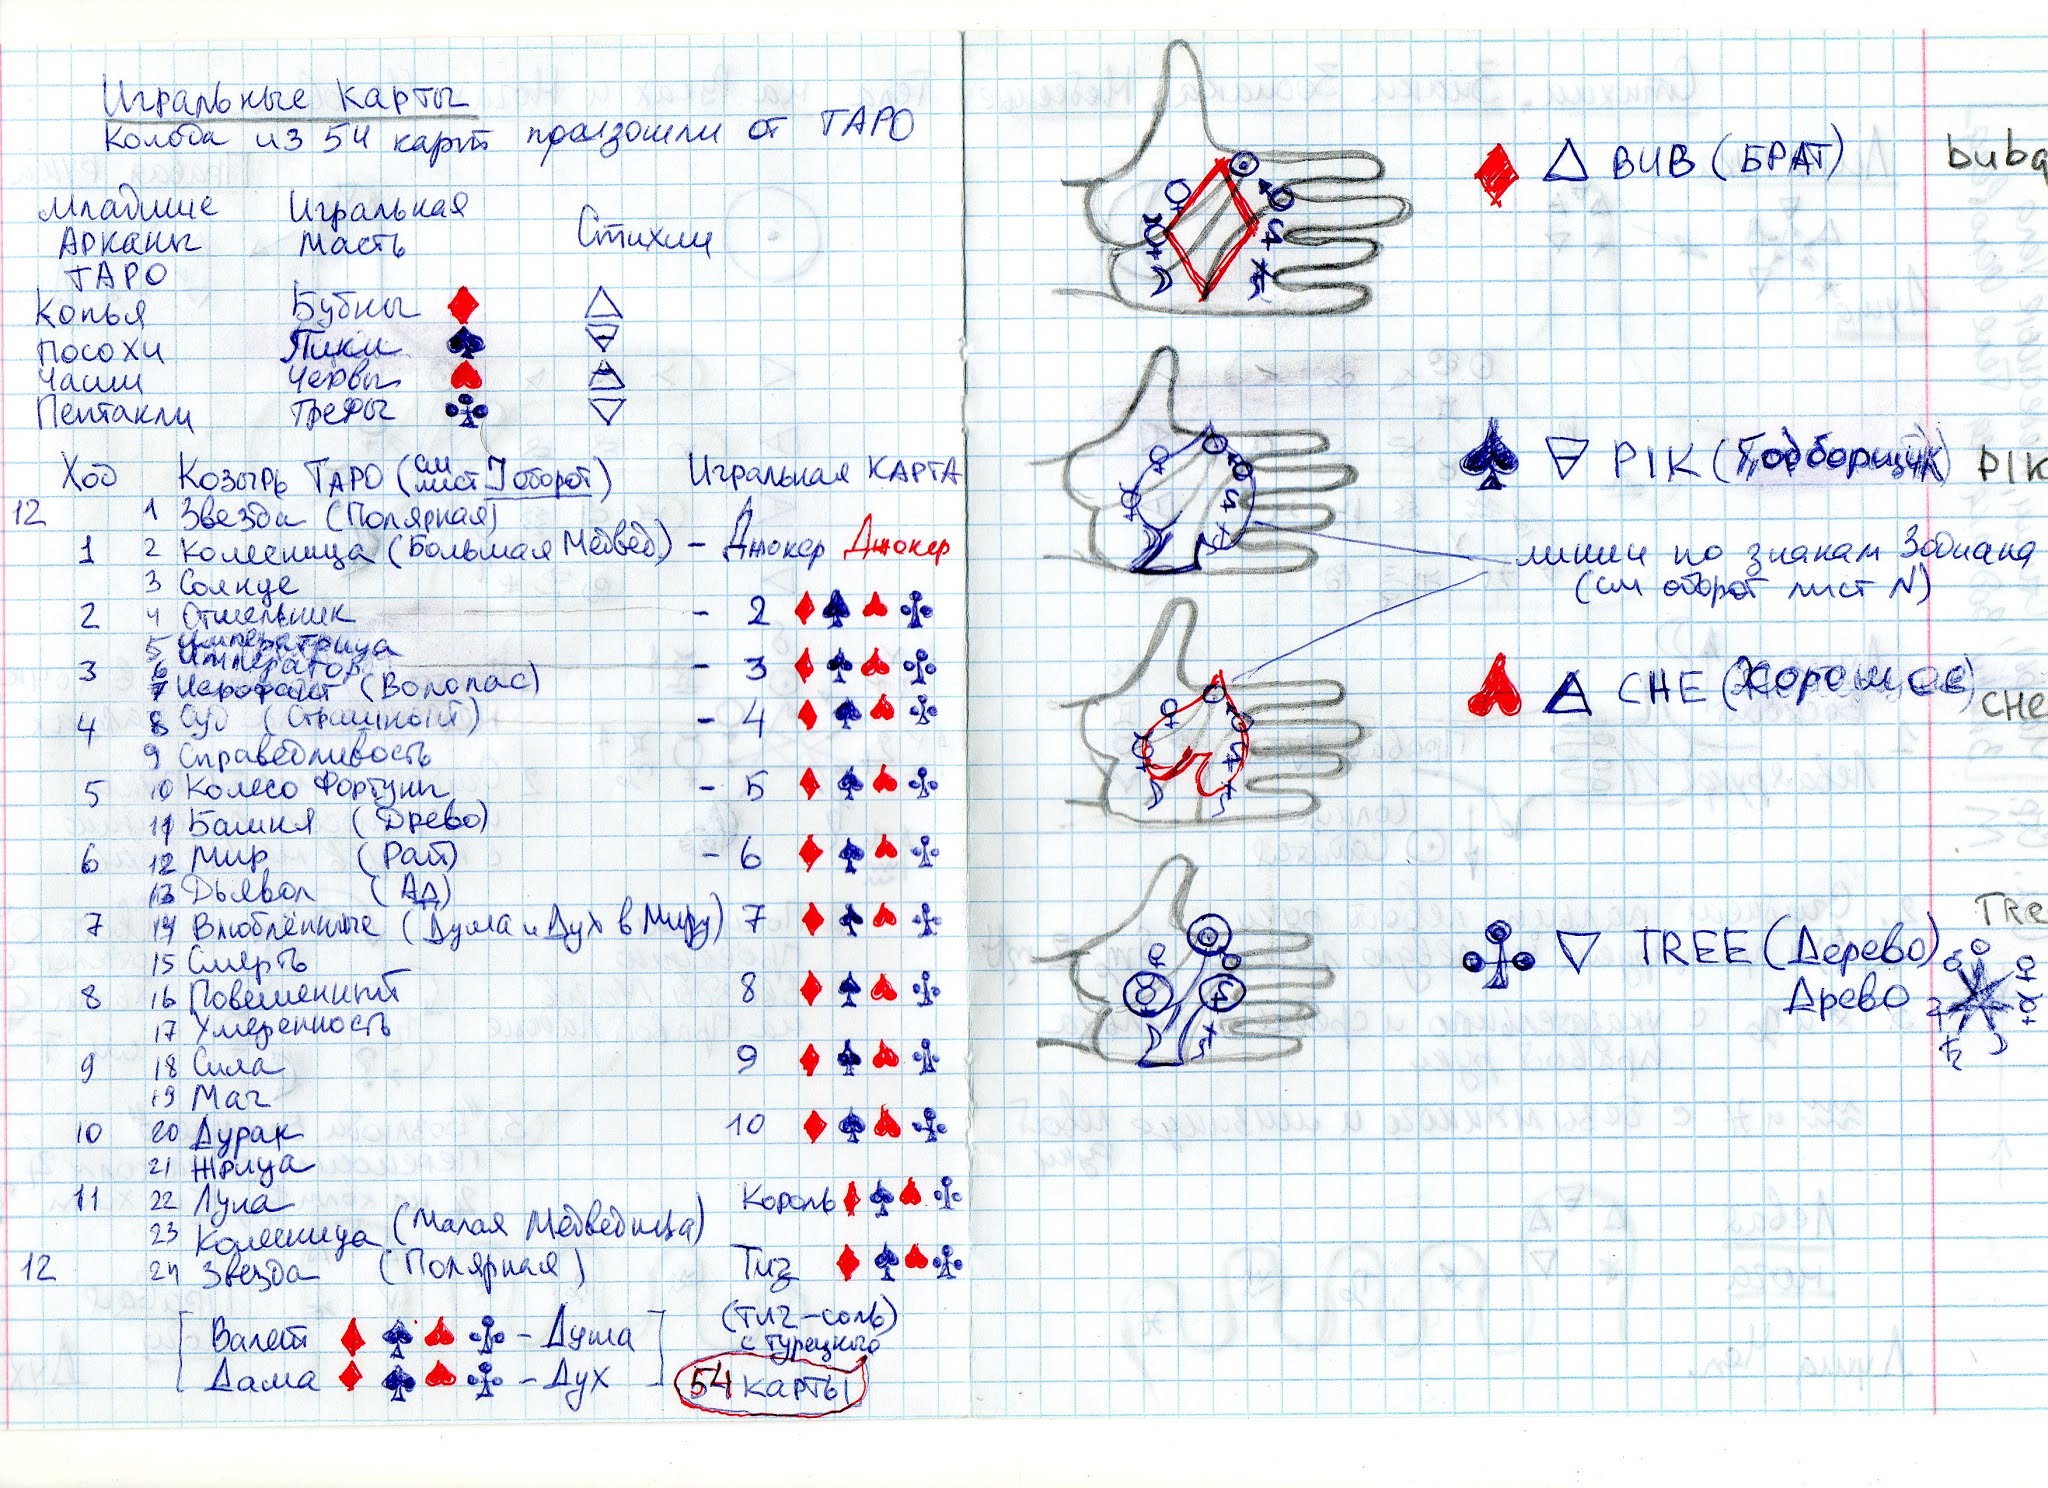 Игральные карты
Колода из 54 карт произошли от ТАРО
Младшие Игральная
Арканы масть Стихии
ТАРО
Копья Бубны ♦ △
Посохи Пики ♠
Чаши Червы ♥
Пентакли Трефы ♣ ▽
Ход Козырь Таро (см лист оборот) Игральная КАРТА
12 1 Звезда (Полярная)
1 2 Колесница (Большая Медвед) - Джокер Джокер
3 Солнце
2 4 Отшельник - 2 ♦ ♠ ♥ ♣
5 Императрица
3 6 Император - 3 ♦ ♠ ♥ ♣
7 Иерофант (Волопас)
4 8 Суд (Страшный) - 4 ♦ ♠ ♥ ♣
9 Справедливость
5 10 Колесо Фортуны - 5 ♦ ♠ ♥ ♣
11 Башня (Древо)
6 12 Мир (Рай) - 6 ♦ ♠ ♥ ♣
13 Дьявол (Ад)
7 14 Влюблённые (Душа и Дух в Миру) 7 ♦ ♠ ♥ ♣
15 Смерть
8 16 Повешенный 8 ♦ ♠ ♥ ♣
17 Умеренность
9 18 Сила 9 ♦ ♠ ♥ ♣
19 Маг
10 20 Дурак 10 ♦ ♠ ♥ ♣
21 Жрица
11 22 Луна Король ♦ ♠ ♥ ♣
23 Колесница (Малая Медведица)
12 24 Звезда (Полярная) Туз ♦ ♠ ♥ ♣
(туз-соль)
с турецкого
Валет ♦ ♠ ♥ ♣ - Душа
Дама ♦ ♠ ♥ ♣ - Дух
54 карты
♦ △ BUB (БРАТ) buba
♠ PIK (Подборщик) PIK
линии по знакам Зодиака
(см оборот лист N)
♥ CHE (Хорошее) CHE
♣ ▽ TREE (Дерево) Tre
Древо